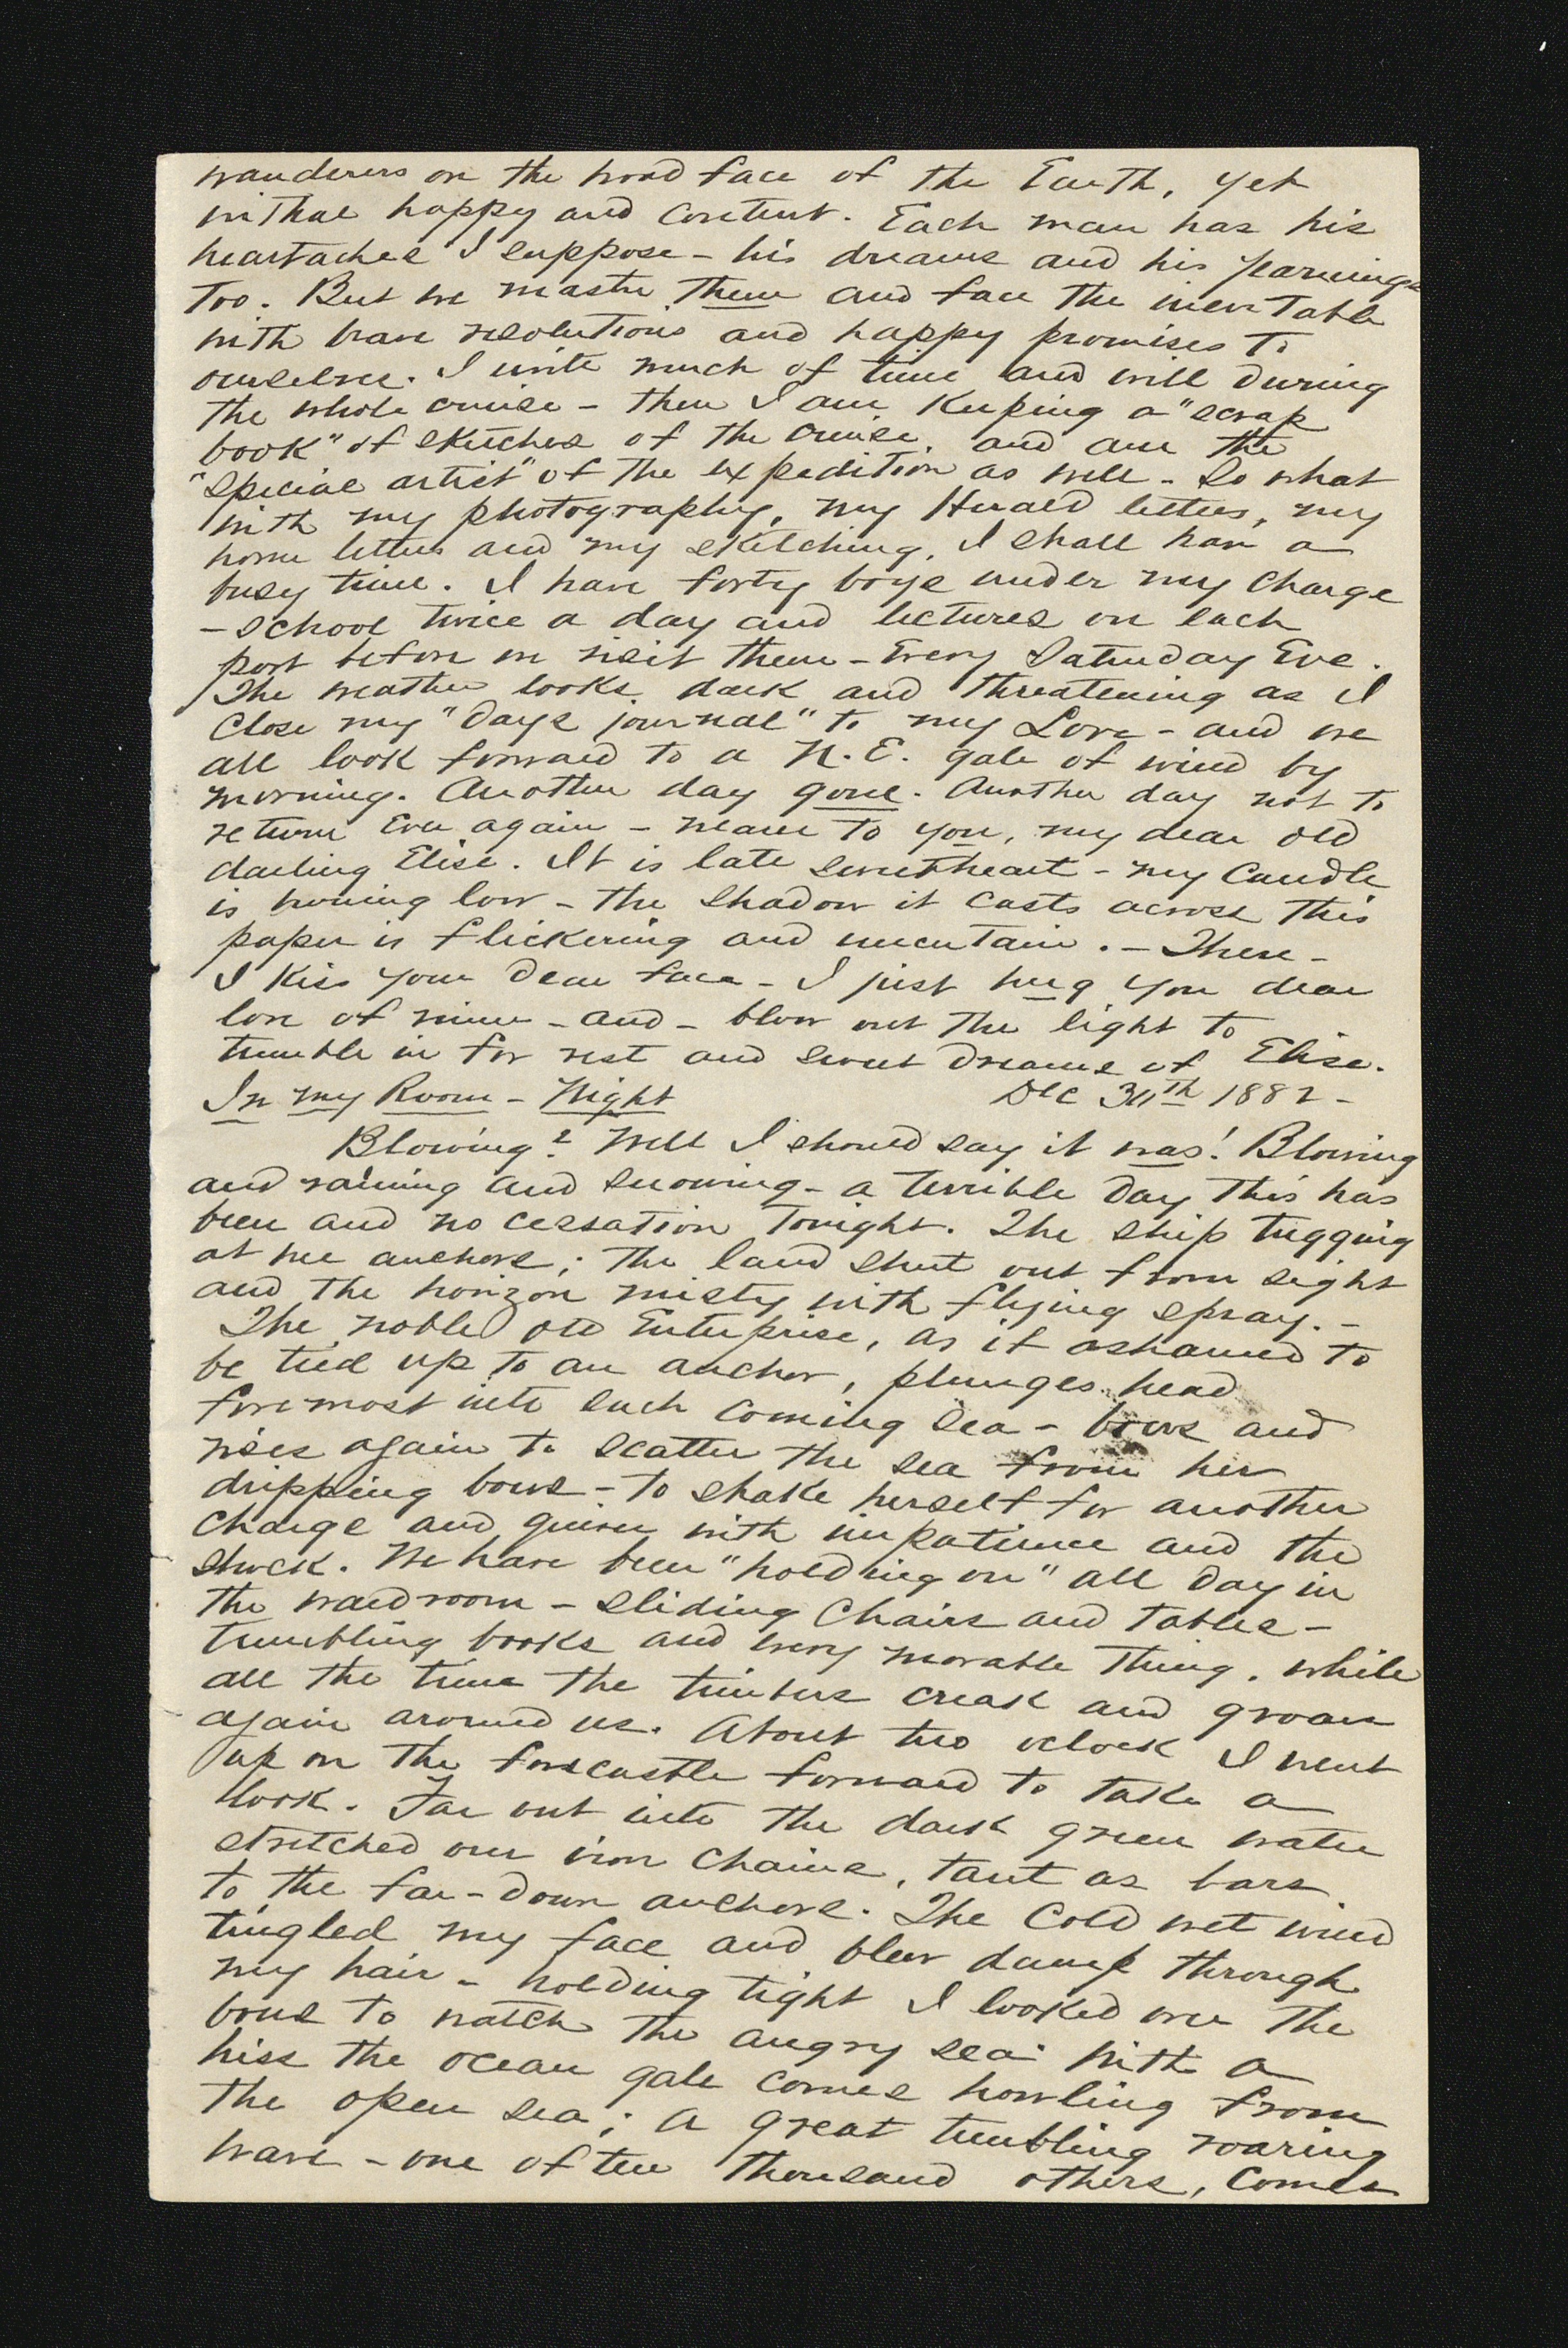 wanderers on the broad face of the Earth, yet
withal happy and content. Each man has his
heartaches I suppose - his dreams and his yearnings
too. But we master them and face the inevitable
with brave resolutions and happy promises to
ourselves. I write much of time and will during
the whole cruise - then I am keeping a "scrap
book" of sketches of the cruise, and am the
"special artist" of the expedition as well - So what
with my photography, my Herald letters, my
home letters and my sketching, I shall have a
busy time. I have forty boys under my charge
- school twice a day and lectures on each
port before we visit them - Every Saturday Eve.
The weather looks dark and threatening as I
close my "days journal" to my Love - and we
all look forward to a N.E. gale of wind by
morning. Another day gone. Another day not to
return ever again - nearer to you, my dear old
darling Elise. It is late sweetheart - my candle
is burning low - the shadow it casts across this
paper is flickering and uncertain. - There -
I kiss your dear face - I just hug you dear
love of mine - and - blow out the light to
tumble in for rest and sweet dreams of Elise.
In my Room - Night Dec 30th 1882 -
Blowing? Well I should say it was! Blowing
and raining and snowing - a terrible day this has
been and no cessation tonight. The ship tugging
at her anchors; the land shut out from sight
and the horizon misty with flying spray. -
The noble old Enterprise, as if ashamed to
be tied up to an anchor, plunges head
foremost into each coming sea - bows and
rises again to scatter the sea from her
dripping bows - to shake herself for another
charge and quiver with impatience and the
shock. We have been "holding on" all day in
the wardroom - sliding chairs and tables -
tumbling books and every movable thing, while
all the time the timbers creak and groan
again around us. About two oclock I went
up on the forecastle forward to take a
look. Far out into the dark green water
stretched our iron chains, taut as bars
to the far-down anchors. The cold wet wind
tingled my face and blew damp through
my hair - holding tight I looked over the
bows to watch the angry sea. With a
hiss the ocean gale comes howling from
the open sea; a great tumbling roaring
wave - one of ten thousand others, comes